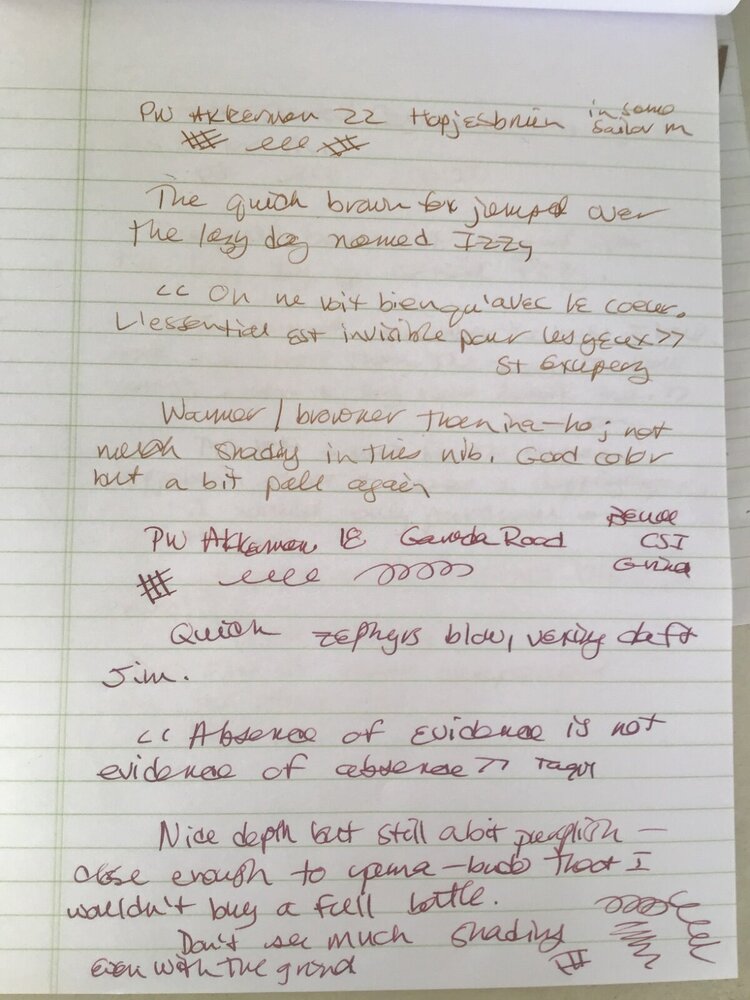 PW Akkerman 22 Hopjesbruin in some
Sailor M
The quick brown fox jumped over
the lazy dog named Izzy
<< On ne voit bien qu'avec le coeur.
L'essentiel est invisible pour les yeux >>
St Exupery
Warmer / browner than ina-ho; not
much shading in this nib. Good color
but a bit pale again
PW Akkerman 18 Garuda Rood
CSI
Grind
Quick zephyrs blow, vexing daft
Jim.
<< Absence of evidence is not
evidence of absence >>
Nice depth but still a bit purplish —
close enough to yama-budo that I
wouldn't buy a full bottle.
Don't see much shading
even with the grind